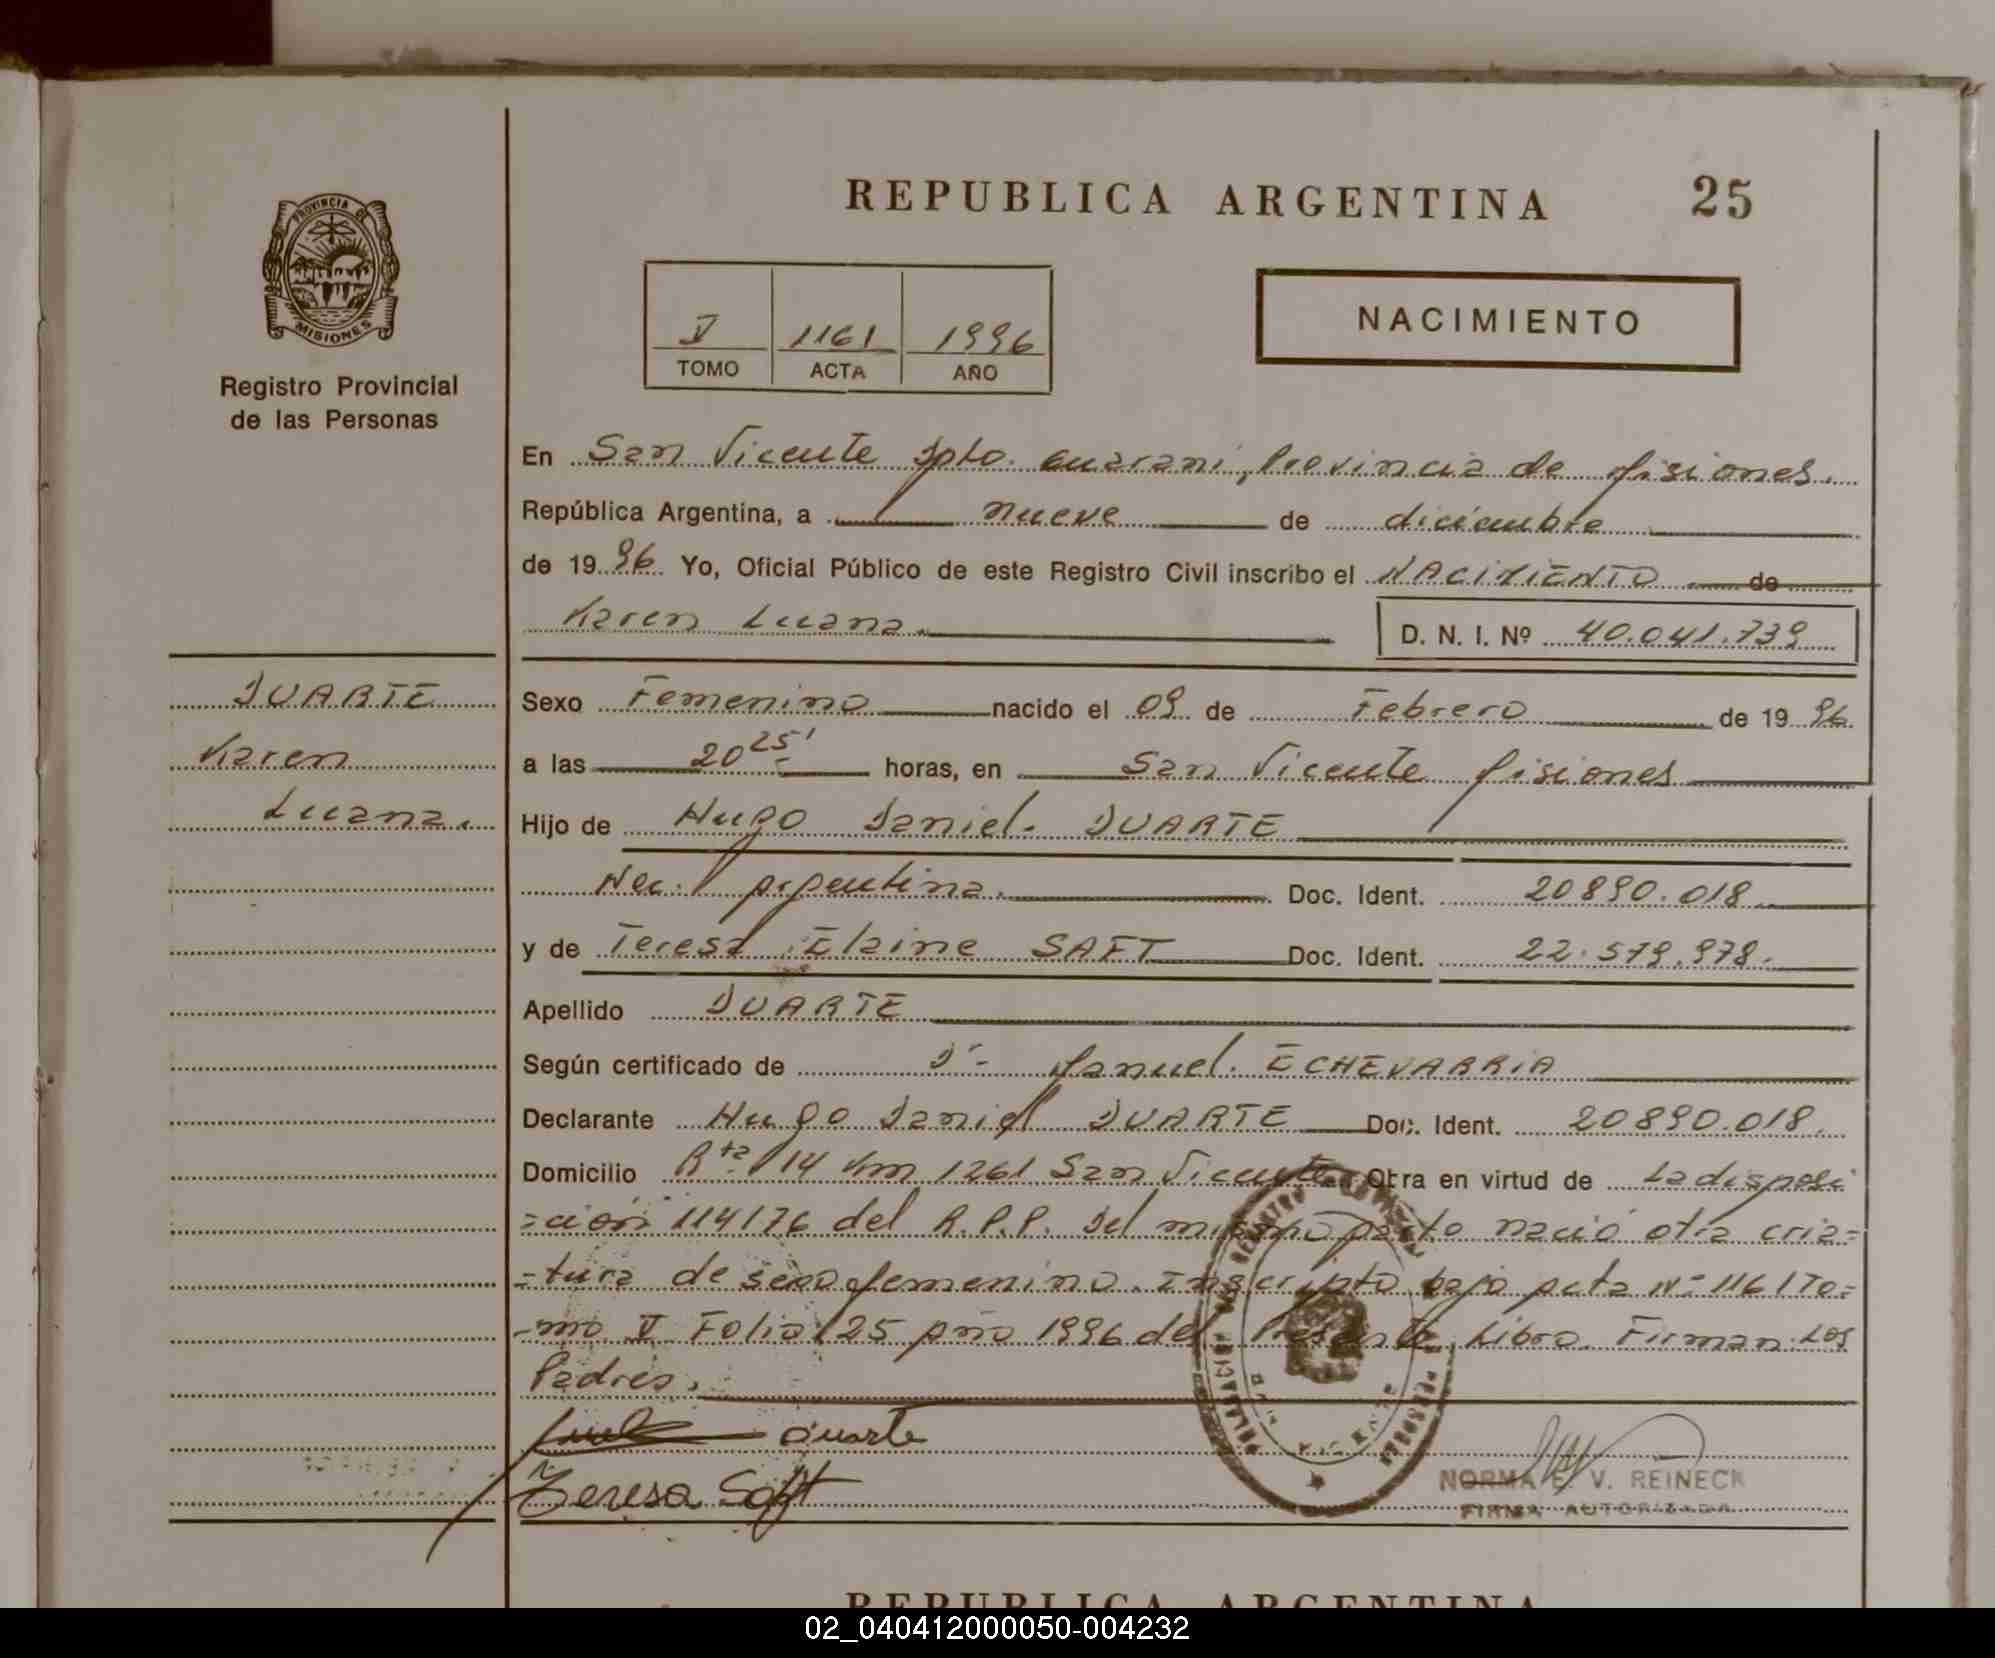 REPUBLICA ARGENTINA 25
PROVINCIA DE
MISIONES
Registro Provincial
de las Personas
V 1161 1996
TOMO ACTA AÑO
NACIMIENTO
En San Vicente Dpto. Guarani, Provincia de Misiones.
República Argentina, a nueve de diciembre
de 1996 Yo, Oficial Público de este Registro Civil inscribo el NACIMIENTO de
Karen Luana. D. N. I. Nº 40.041.739
DUARTE
Karen
Luana.
Sexo Femenino nacido el 09 de Febrero de 1996
a las 20 25' horas, en San Vicente Misiones
Hijo de Hugo Daniel. DUARTE
Nac. Argentina. Doc. Ident. 20890.018
y de Teresa Elaine SAFT Doc. Ident. 22.579.978.
Apellido DUARTE
Según certificado de Dr- Manuel. ECHEVARRIA
Declarante Hugo Daniel DUARTE Doc. Ident. 20890.018.
Domicilio Rta 14 Km 1261 San Vicente Otra en virtud de La disposi
=ción 114176 del R.P.P. Del mismo parto nació otra cria=
=tura de sexo femenino. Inscripto bajo acta Nº 1161 To=
-mo V Folio 25 año 1996 del Presente Libro. Firman Los
Padres.
Duarte
Teresa Saft
NORMA E. V. REINECK
FIRMA AUTORIZADA
REPUBLICA ARGENTINA
02_040412000050-004232